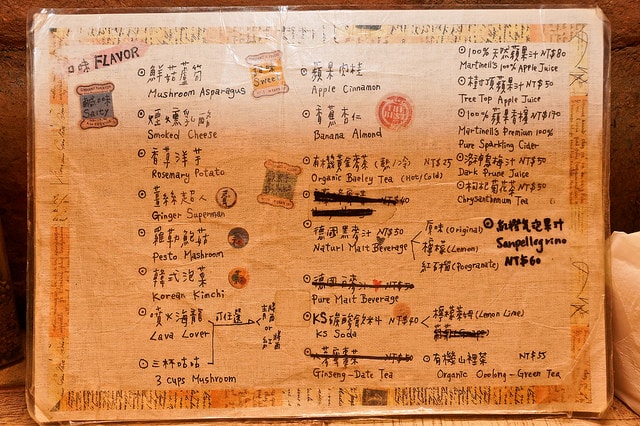 口味 FLAVOR
鹹味
Salty
鮮菇蘆筍
Mushroom Asparagus
煙燻乳酪
Smoked Cheese
香草洋芋
Rosemary Potato
薑絲超人
Ginger Superman
羅勒鮑菇
Pesto Mashroom
韓式泡菜
Korean Kimchi
噴火海龍
Lava Lover
三杯咕咕
3 cups Mushroom
可任選
or
Sweet
蘋果肉桂
Apple Cinnamon
香蕉杏仁
Banana Almond
有機黃金麥茶 (熱/冷) NT$25
Organic Baeley Tea (Hot/Cold)
德國黑麥汁 NT$50
Naturl Malt Beverage
原味 (Original)
檸檬 (Lemon)
紅石榴 (Poegranate)
Pure Malt Beverage
KS碳酸飲料 NT$40
KS Soda
檸檬萊姆 (Lemon Lime)
Ginseng-Date Tea
100% 天然蘋果汁 NT$80
Martinell's 100% Apple Juice
樹頂蘋果汁 NT$50
Tree Top Apple Juice
100% 蘋果香檳 NT$170
Martinell's Premium 100%
Pure Sparkling Cider
洛神烏梅汁 NT$50
Dark Prune Juice
枸杞菊花茶 NT$50
Chrysanthemum Tea
紅橙氣泡果汁
Sanpellegrino
NT$60
有機山裡茶 NT$55
Organic Oolong-Green Tea